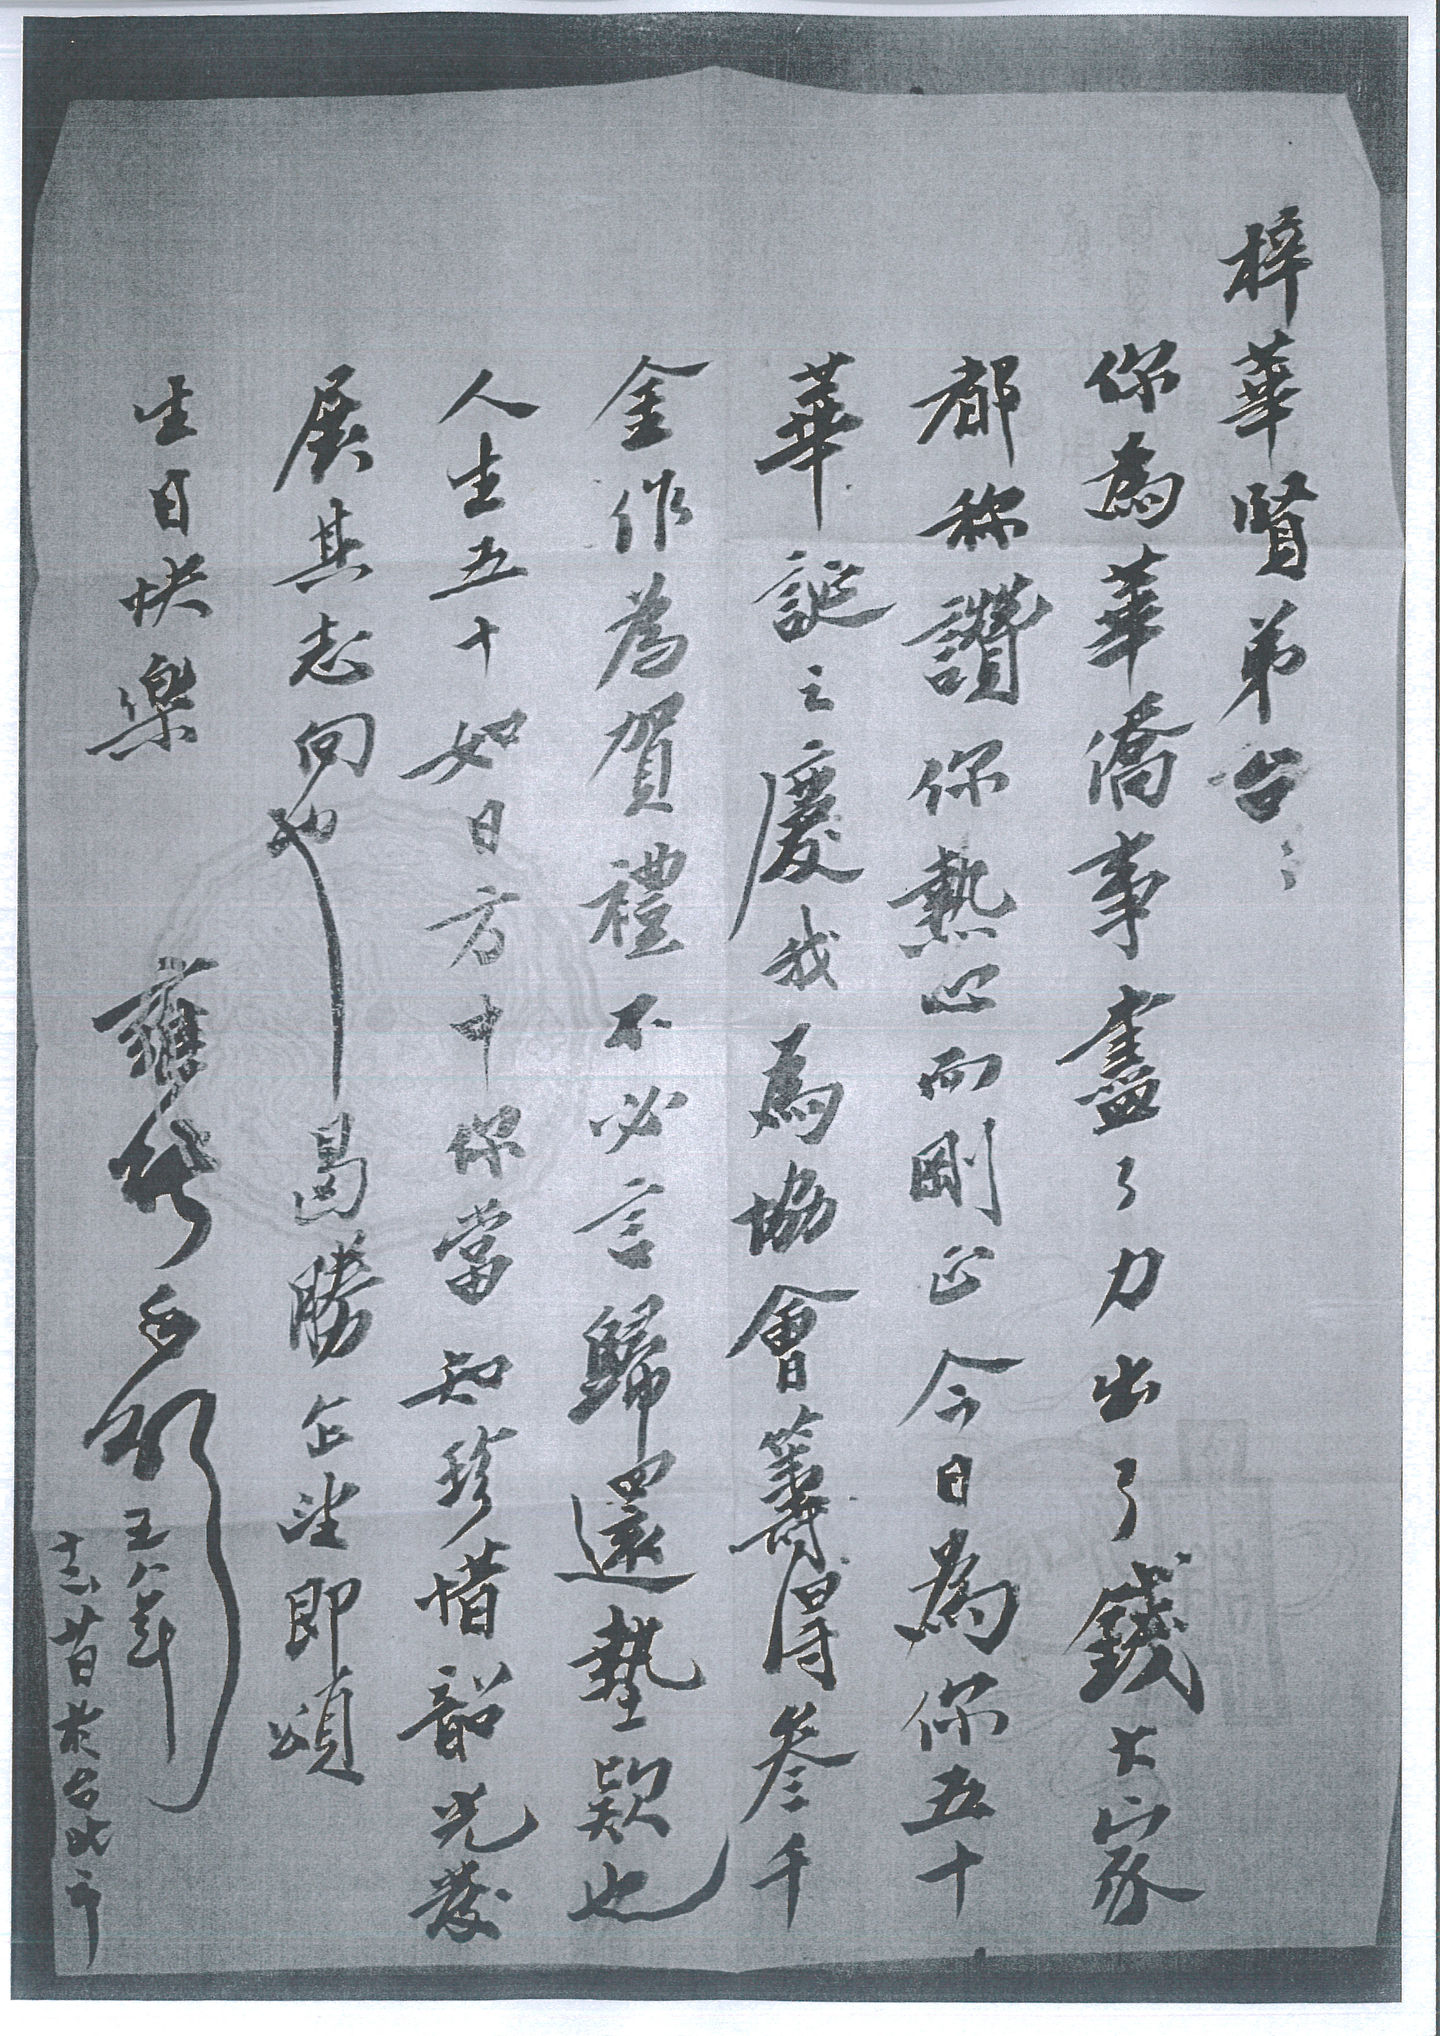 梓華賢弟台：
你為華僑事盡了力出了錢大家
都称讚你熱心而剛正今日為你五十
華誕之慶我為協會籌得叁千
金作為賀禮不必言歸還墊款也
人生五十如日方中你當知珍惜韶光發
展其志向也曷勝企望即頌
生日快樂
五八年
於台北市